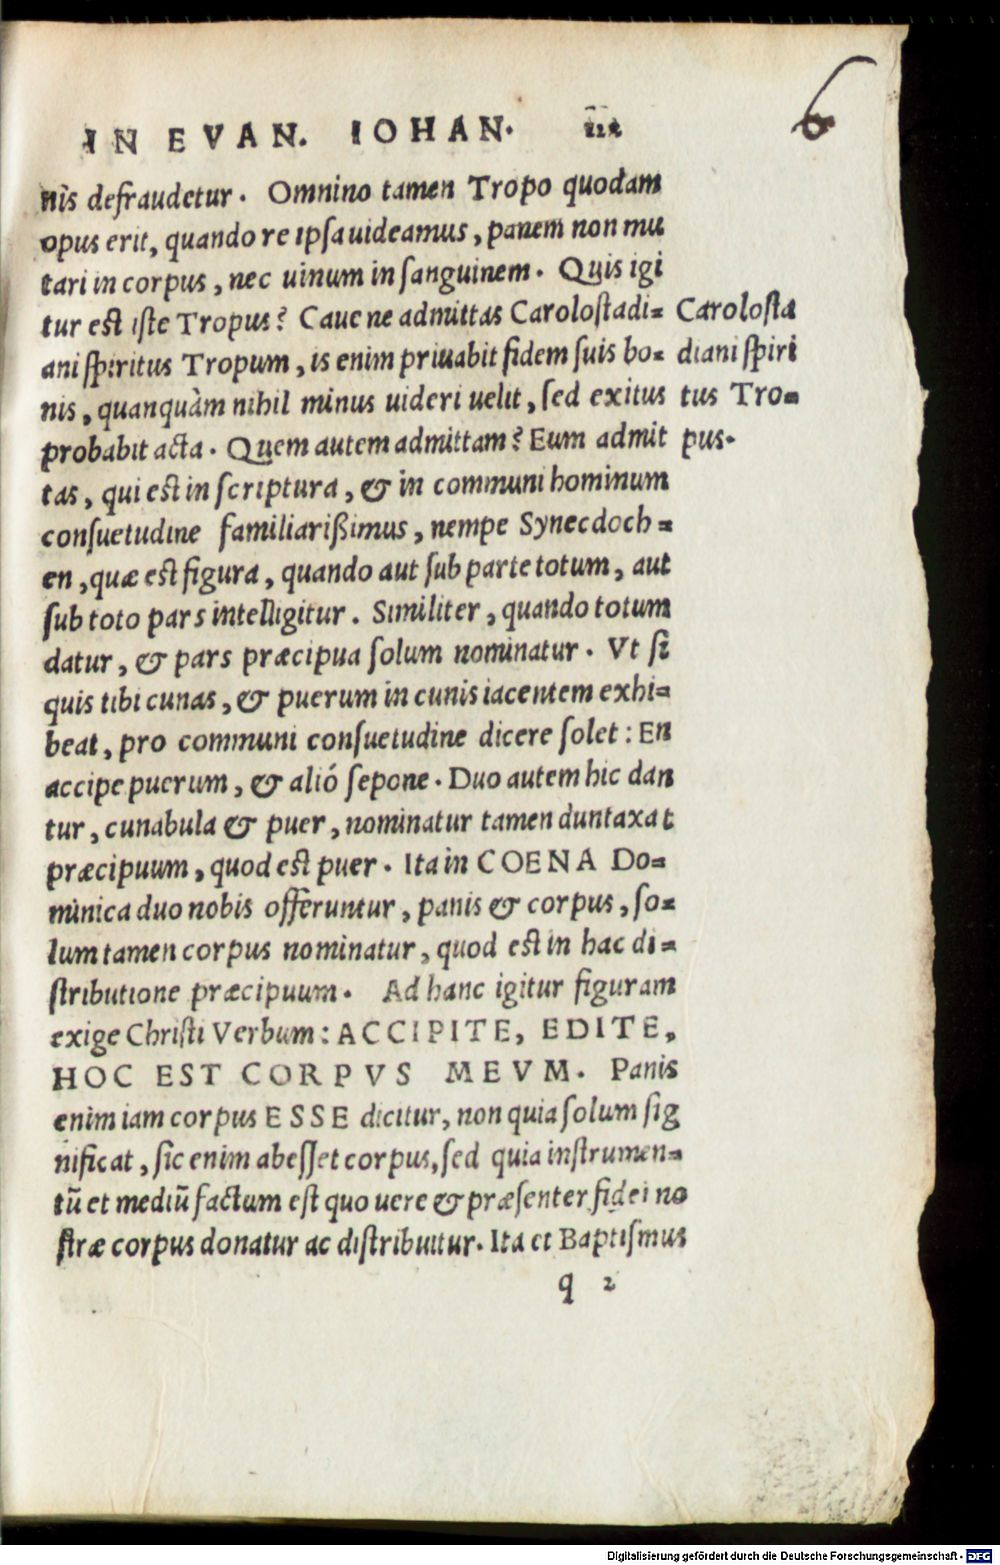 IN EVAN. IOHAN.
6
nis defraudetur. Omnino tamen Tropo quodam
opus erit, quando re ipsa uideamus, panem non mu
tari in corpus, nec uinum in ſanguinem. Quis igi
tur eſt iſte Tropus? Caue ne admittas Caroloſtadi-
ani ſpiritus Tropum, is enim priuabit fidem ſuis bo-
nis, quanquàm nihil minus uideri uelit, ſed exitus
probabit acta. Quem autem admittam? Eum admit
tas, qui eſt in ſcriptura, & in communi hominum
conſuetudine familiarißimus, nempe Synecdoch-
en, quæ eſt figura, quando aut ſub parte totum, aut
ſub toto pars intelligitur. Similiter, quando totum
datur, & pars præcipua ſolum nominatur. Vt ſi
quis tibi cunas, & puerum in cunis iacentem exhi-
beat, pro communi conſuetudine dicere ſolet: En
accipe puerum, & aliò ſepone. Duo autem hic dan
tur, cunabula & puer, nominatur tamen duntaxat
præcipuum, quod eſt puer. Ita in COENA Do-
minica duo nobis offeruntur, panis & corpus, ſo-
lum tamen corpus nominatur, quod eſt in hac di-
ſtributione præcipuum. Ad hanc igitur figuram
exige Chriſti Verbum: ACCIPITE, EDITE,
HOC EST CORPVS MEVM. Panis
enim iam corpus ESSE dicitur, non quia ſolum ſig
nificat, ſic enim abeſſet corpus, ſed quia inſtrumen-
tũ et mediũ factum eſt quo uere & præſenter fidei no
ſtræ corpus donatur ac diſtribuitur. Ita et Baptiſmus
q 2
Caroloſta
diani ſpiri
tus Tro-
pus.
Digitalisierung gefördert durch die Deutsche Forschungsgemeinschaft - DFG